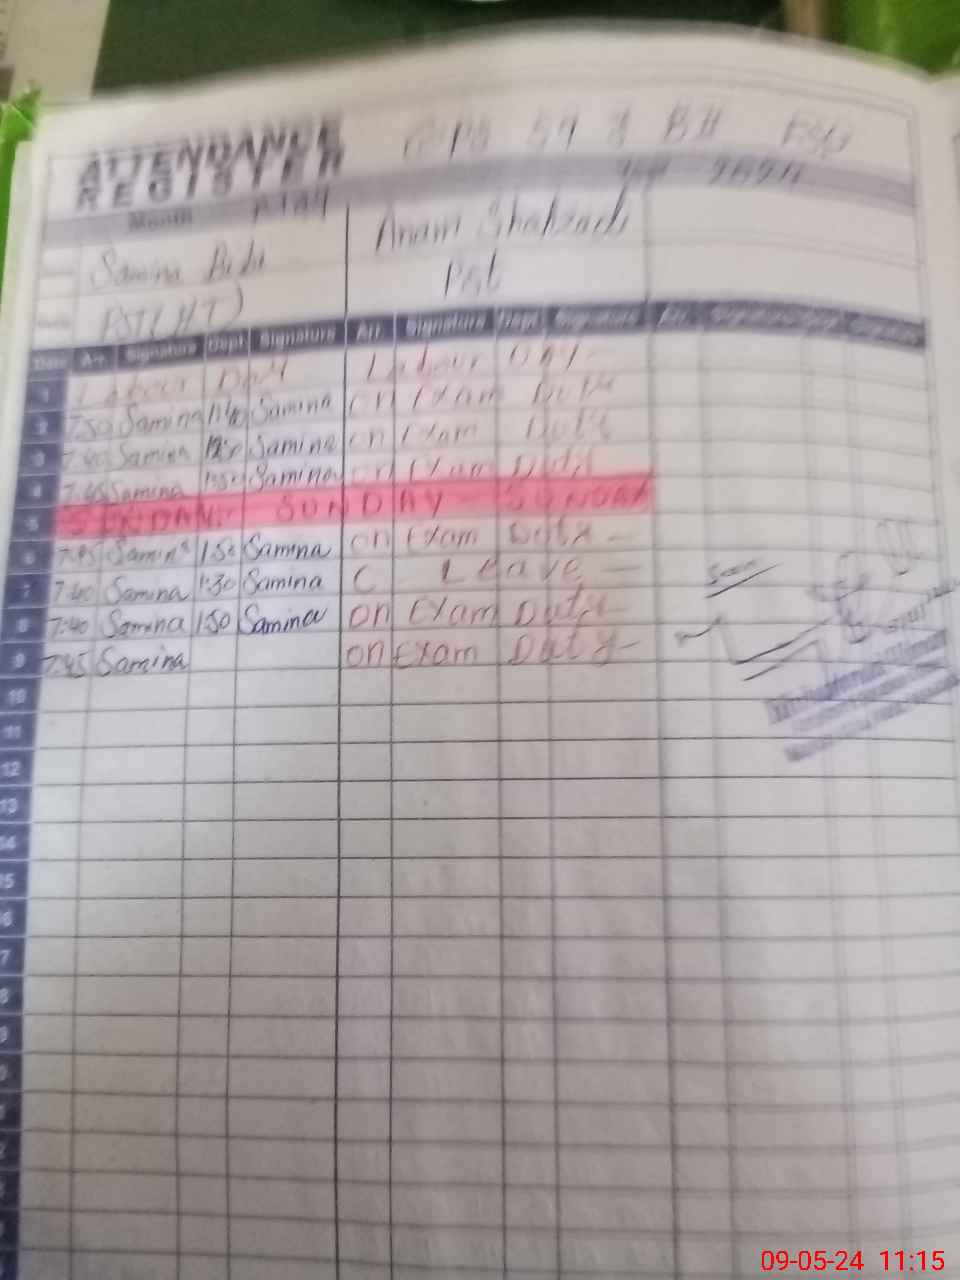 ATTENDANCE
REGISTER
GPS 59 3 BH
Month May 2024
Samina Bibi Anam Shahzadi
PST(HT) Pst
Date Arr. Signature Dept. Signature Arr. Signature Dept. Signature Arr. Signature Dept. Signature
1 Labour DAY Labour DAY-
2 7:50 Samina Samina on Exam Duty
3 7:40 Samina Samina on Exam Duty
4 7:45 Samina Samina on Exam Duty
5 SUNDAY SUNDAY SUNDAY
6 7:45 Samina 1:50 Samina on Exam Duty -
7 7:40 Samina 1:30 Samina C Leave -
8 7:40 Samina 1:50 Samina on Exam Duty-
9 7:45 Samina on Exam Duty-
10
11
12
13
14
15
16
17
09-05-24 11:15